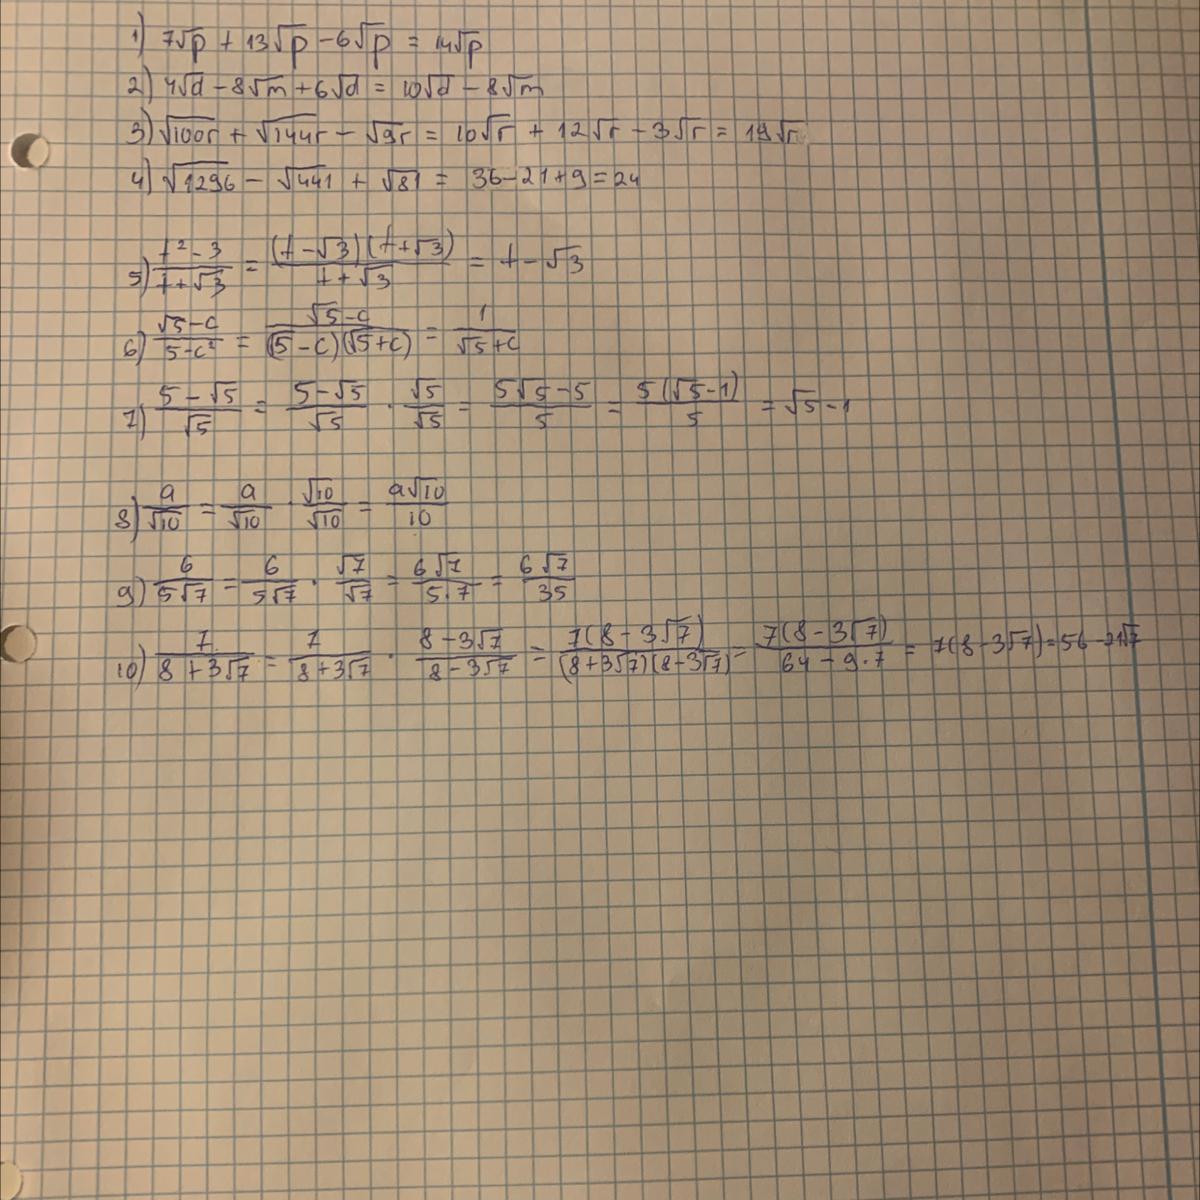 1) 7√p + 13√p - 6√p = 14√p
2) 4√d - 8√m + 6√d = 10√d - 8√m
3) √100r + √144r - √9r = 10√r + 12√r - 3√r = 19√r
4) √1296 - √441 + √81 = 36 - 21 + 9 = 24
5) (t² - 3)/(t + √3) = ((t - √3)(t + √3))/(t + √3) = t - √3
6) (√5 - c)/(5 - c²) = (√5 - c)/((√5 - c)(√5 + c)) = 1/(√5 + c)
7) (5 - √5)/√5 = (5 - √5)/√5 · √5/√5 = (5√5 - 5)/5 = (5(√5 - 1))/5 = √5 - 1
8) a/√10 = a/√10 · √10/√10 = a√10/10
9) 6/(5√7) = 6/(5√7) · √7/√7 = 6√7/(5·7) = 6√7/35
10) 7/(8 + 3√7) = 7/(8 + 3√7) · (8 - 3√7)/(8 - 3√7) = (7(8 - 3√7))/((8 + 3√7)(8 - 3√7)) = (7(8 - 3√7))/(64 - 9·7) = 7(8 - 3√7) = 56 - 21√7